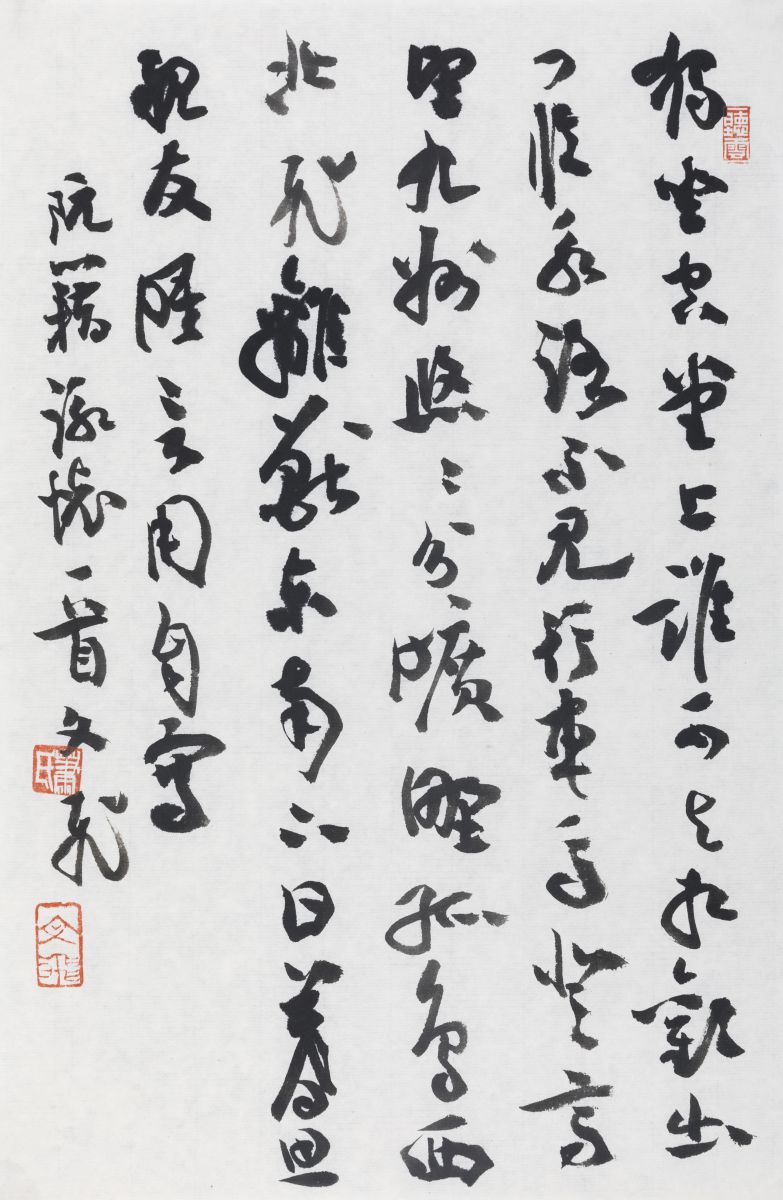 獨坐空堂上誰可与相歡出
门臨永路不見行車馬登高
望九州悠〻分曠野孤鳥西
北飛離獸东南下日暮思
親友晤言用自寫
阮籍詠懷一首文飛
聽雲
蕭氏